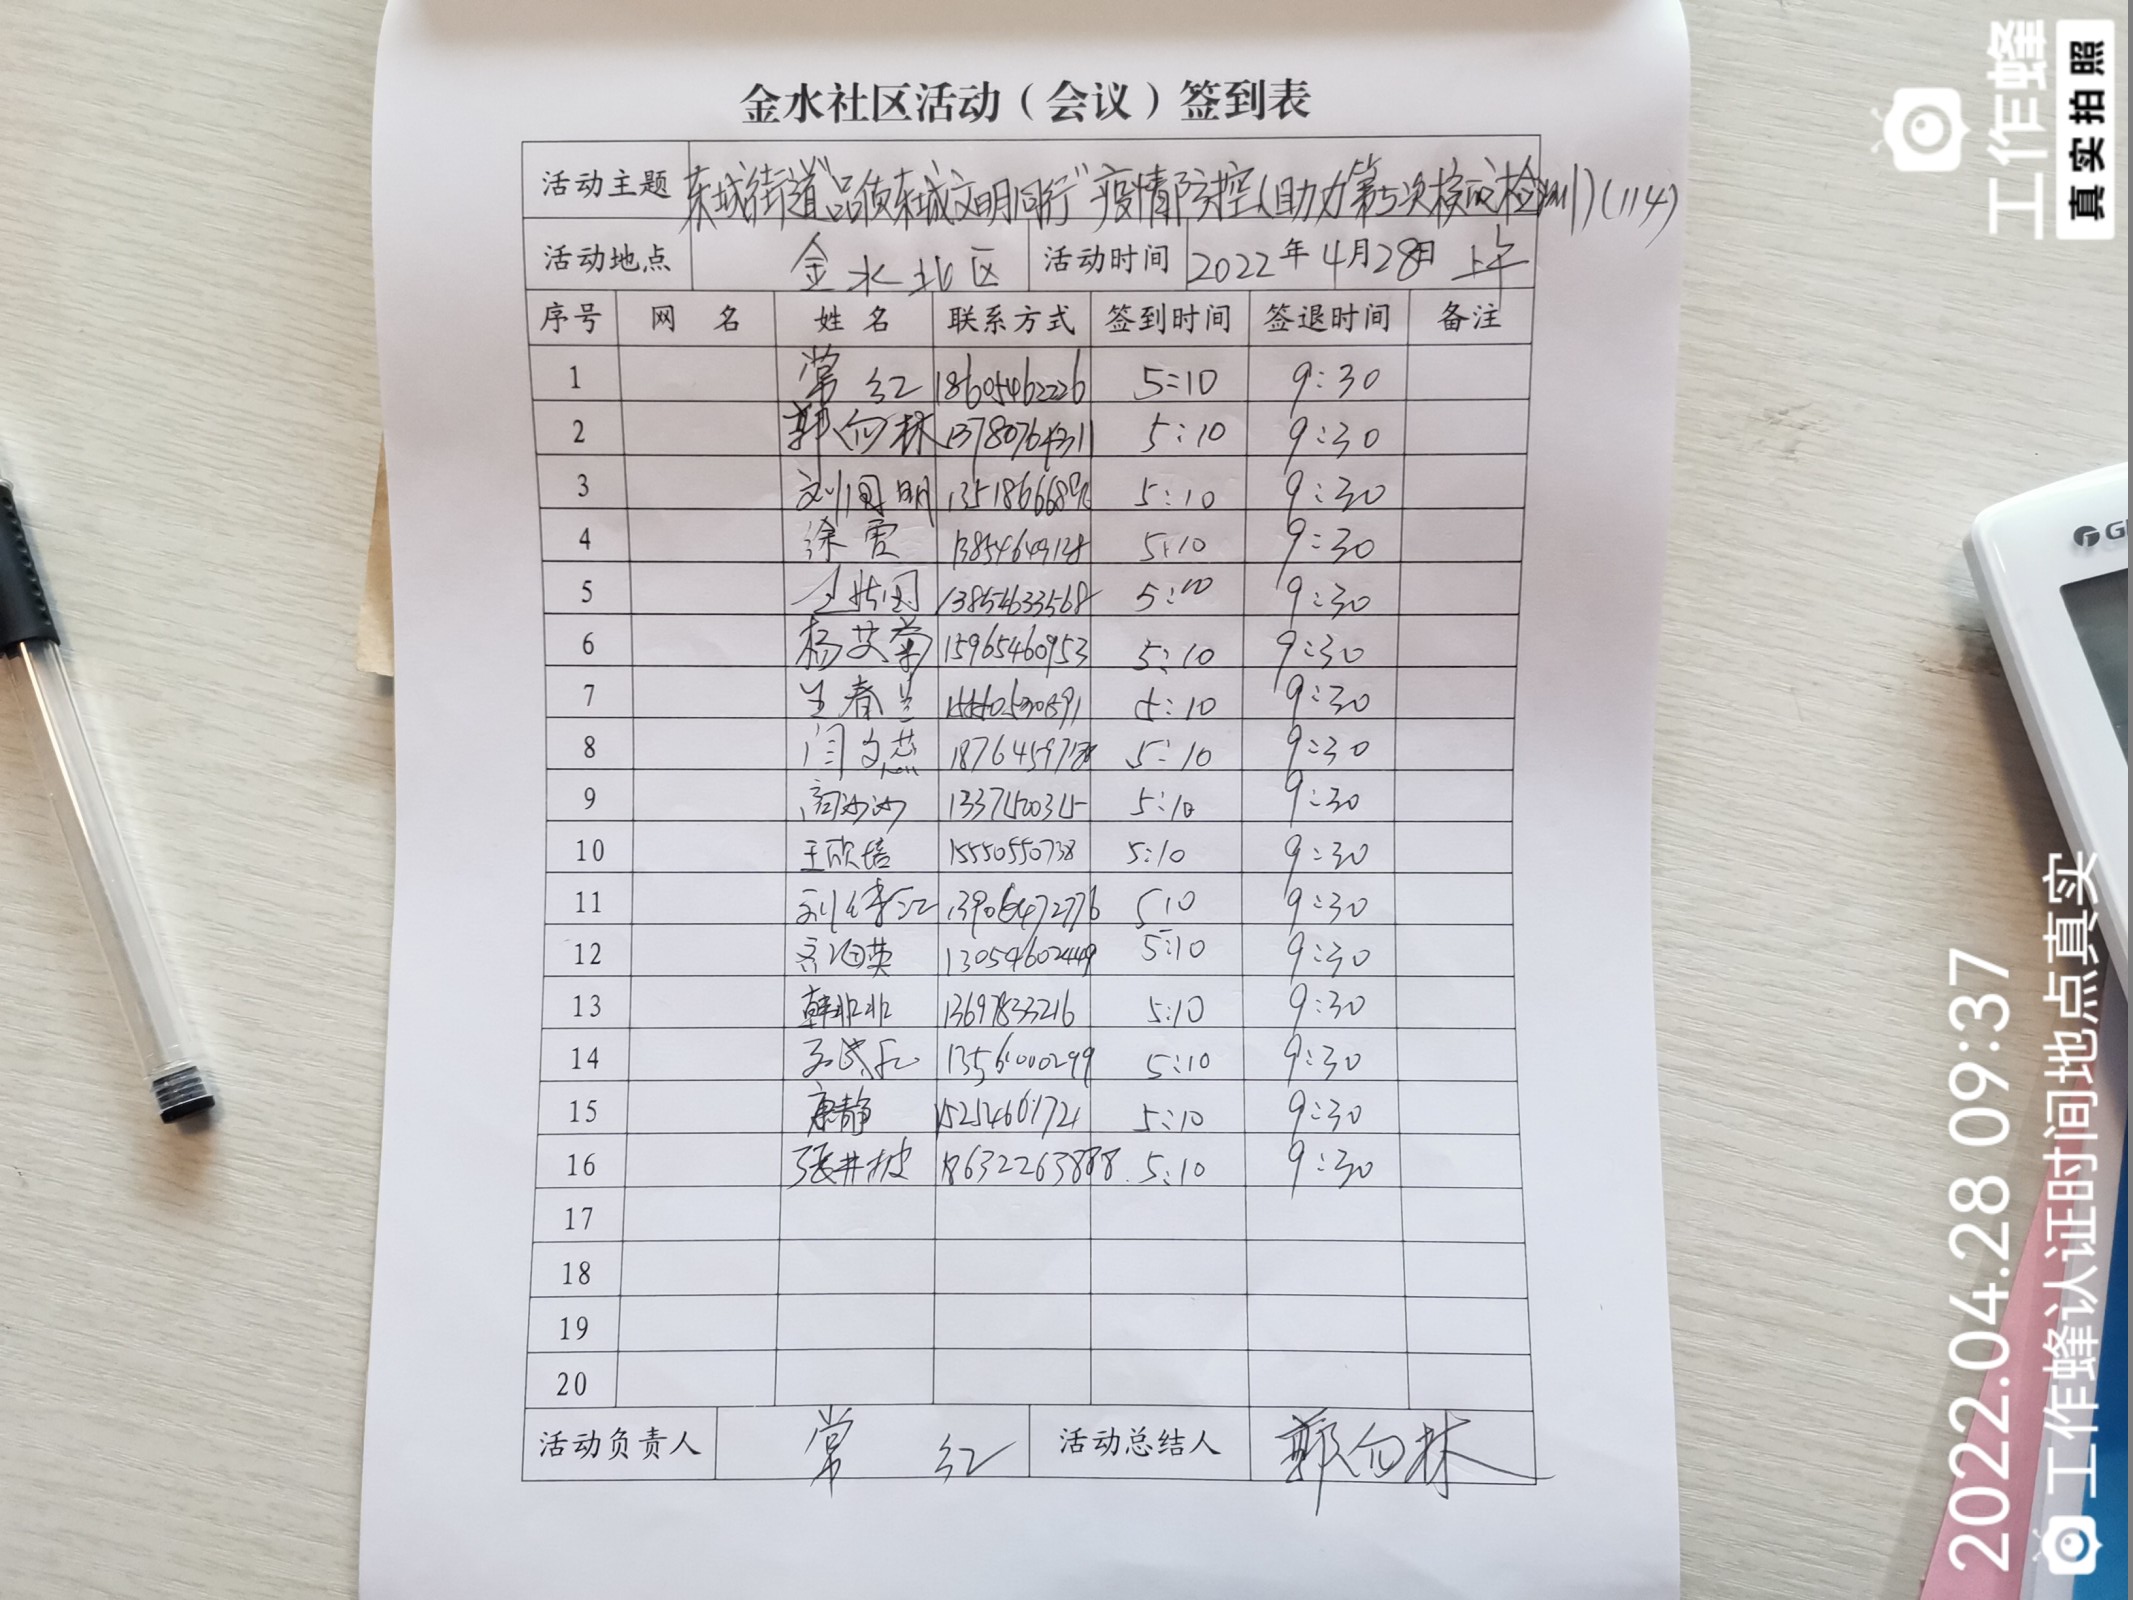 金水社区活动（会议）签到表
活动主题 东城街道"品质东城文明同行"疫情防控(助力第5次核酸检测)(114)
活动地点 金水北区 活动时间 2022年4月28日 上午
序号 网 名 姓 名 联系方式 签到时间 签退时间 备注
1 常红 18605462226 5:10 9:30
2 郭向林 13780764311 5:10 9:30
3 刘国明 5:10 9:30
4 徐霞 13854649128 5:10 9:30
5 13854633568 5:10 9:30
6 杨艾荣 15965460953 5:10 9:30
7 春兰 5:10 9:30
8 闫文燕 5:10 9:30
9 沙沙 5:10 9:30
10 王欣培 15550550738 5:10 9:30
11 刘 13906472776 5:10 9:30
12 齐国英 13054602449 5:10 9:30
13 韩非非 13697833216 5:10 9:30
14 13561000299 5:10 9:30
15 康静 15254661721 5:10 9:30
16 张井坡 18632263888. 5:10 9:30
17
18
19
20
活动负责人 常红 活动总结人 郭向林
工作蜂
真实拍照
2022.04.28 09:37
工作蜂认证时间地点真实